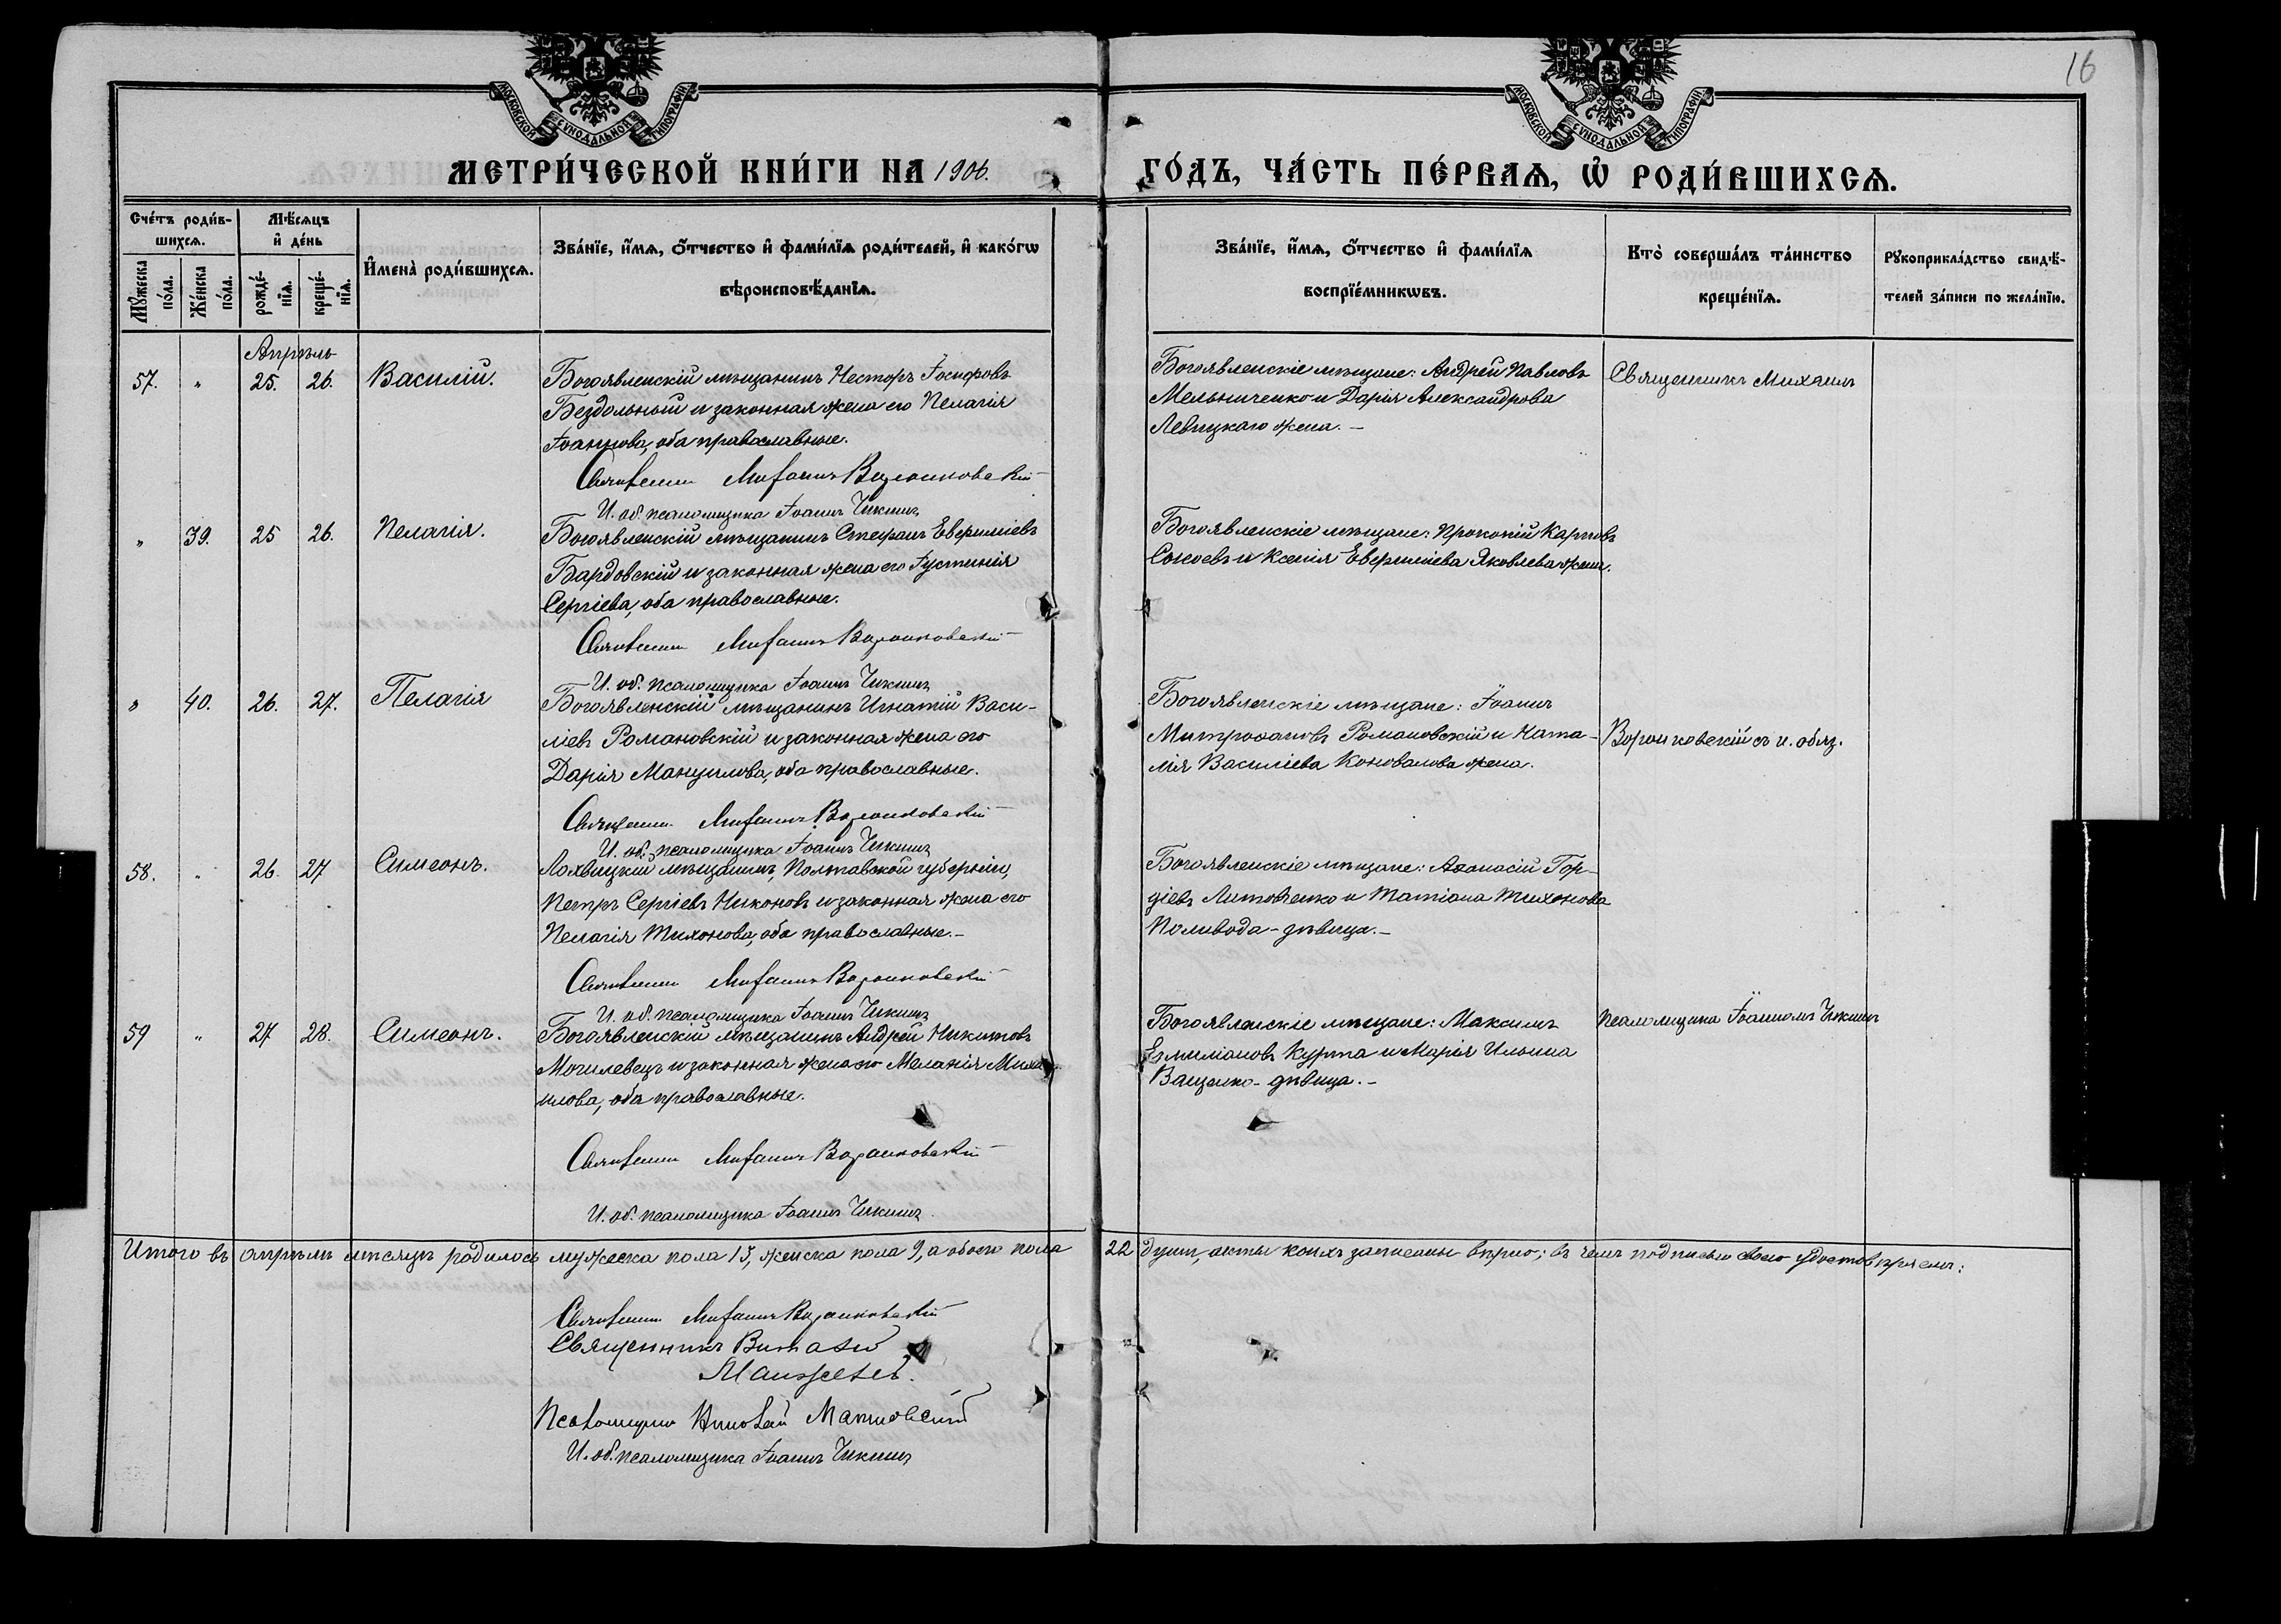 16
МОСКОВСКОЙ СУНОДАЛЬНОЙ ТИПОГРАФІИ
МОСКОВСКОЙ СУНОДАЛЬНОЙ ТИПОГРАФІИ
МЕТРИ́ЧЕСКОЙ КНИ́ГИ НА 1906.
ГО́ДЪ, ЧА́СТЬ ПЕ́РВАѦ, Ѡ҆ РОДИ́ВШИХСѦ.
Сче́тъ роди́в-
шихсѧ.
Мѣ́сѧцъ
и҆ де́нь
Мꙋ́жеска
по́ла.
Же́нска
по́ла.
рожде́-
нїѧ.
креще́-
нїѧ.
И҆мена̀ роди́вшихсѧ.
Зва́нїе, и҆́мѧ, ѻ҆́тчество и҆ фами́лїѧ роди́телей, и҆ како́гѡ
вѣроисповѣ́данїѧ.
Зва́нїе, и҆́мѧ, ѻ҆́тчество и҆ фами́лїѧ
воспрїе́мникѡвъ.
Кто̀ соверша́лъ та́инство
креще́нїѧ.
Рꙋкоприкла́дство свидѣ́-
телей за́писи по жела́нїю.
Апрѣль
57. „ 25. 26. Василій.
Богоявленскій мѣщанинъ Несторъ Іосифовъ
Бездольный и законная жена его Пелагія
Іоаннова, оба православные.
Священникъ Михаилъ Воронковскій
И. об. псаломщика Іоаннъ Чикинъ
Богоявленскіе мѣщане: Андрей Павловъ
Мельниченко и Дарія Александрова
Левицкаго жена. —
Священникъ Михаилъ
„ 39. 25 26. Пелагія.
Богоявленскій мѣщанинъ Стефанъ Евфиміевъ
Бардовскій и законная жена его Іустинія
Сергіева, оба православные.
Священникъ Михаилъ Воронковскій
И. об. псаломщика Іоаннъ Чикинъ
Богоявленскіе мѣщане: Прокопій Карповъ
и Ксенія Евфиміева Яковлева жена.
„ 40. 26. 27. Пелагія
Богоявленскій мѣщанинъ Игнатій Васи-
ліевъ Романовскій и законная жена его
Дарія Мануилова, оба православные.
Священникъ Михаилъ Воронковскій
И. об. псаломщика Іоаннъ Чикинъ
Богоявленскіе мѣщане: Іоаннъ
Митрофановъ Романовскій и Ната-
лія Василіева Коновалова жена.
Воронковскій съ и. обяз.
58. „ 26. 27 Симеонъ.
Лохвицкій мѣщанинъ, Полтавской губерніи,
Петръ Сергіевъ Никоновъ и законная жена его
Пелагія Тихонова, оба православные. —
Священникъ Михаилъ Воронковскій
И. об. псаломщика Іоаннъ Чикинъ
Богоявленскіе мѣщане: Аѳанасій Гор-
діевъ Литовченко и Татіана Тихонова
Поливода - дѣвица. —
59 „ 27 28. Симеонъ.
Богоявленскій мѣщанинъ Андрей Никитовъ
Могилевецъ и законная жена его Меланія Миха
илова, оба православные.
Священникъ Михаилъ Воронковскій
И. об. псаломщика Іоаннъ Чикинъ.
Богоявленскіе мѣщане: Максимъ
Емиліановъ Курта и Марія Ильина
Ващенко - дѣвица. —
псаломщика Іоанномъ Чикинъ
Итого въ апрѣлѣ мѣсяцѣ родилось мужеска пола 13, женска пола 9, а обоего пола 22 душъ, акты коихъ записаны вѣрно; въ чемъ подписью своею удостовѣряемъ:
Священникъ Михаилъ Воронковскій
Священникъ Виталій
Псаломщикъ Николай
И. об. псаломщика Іоаннъ Чикинъ